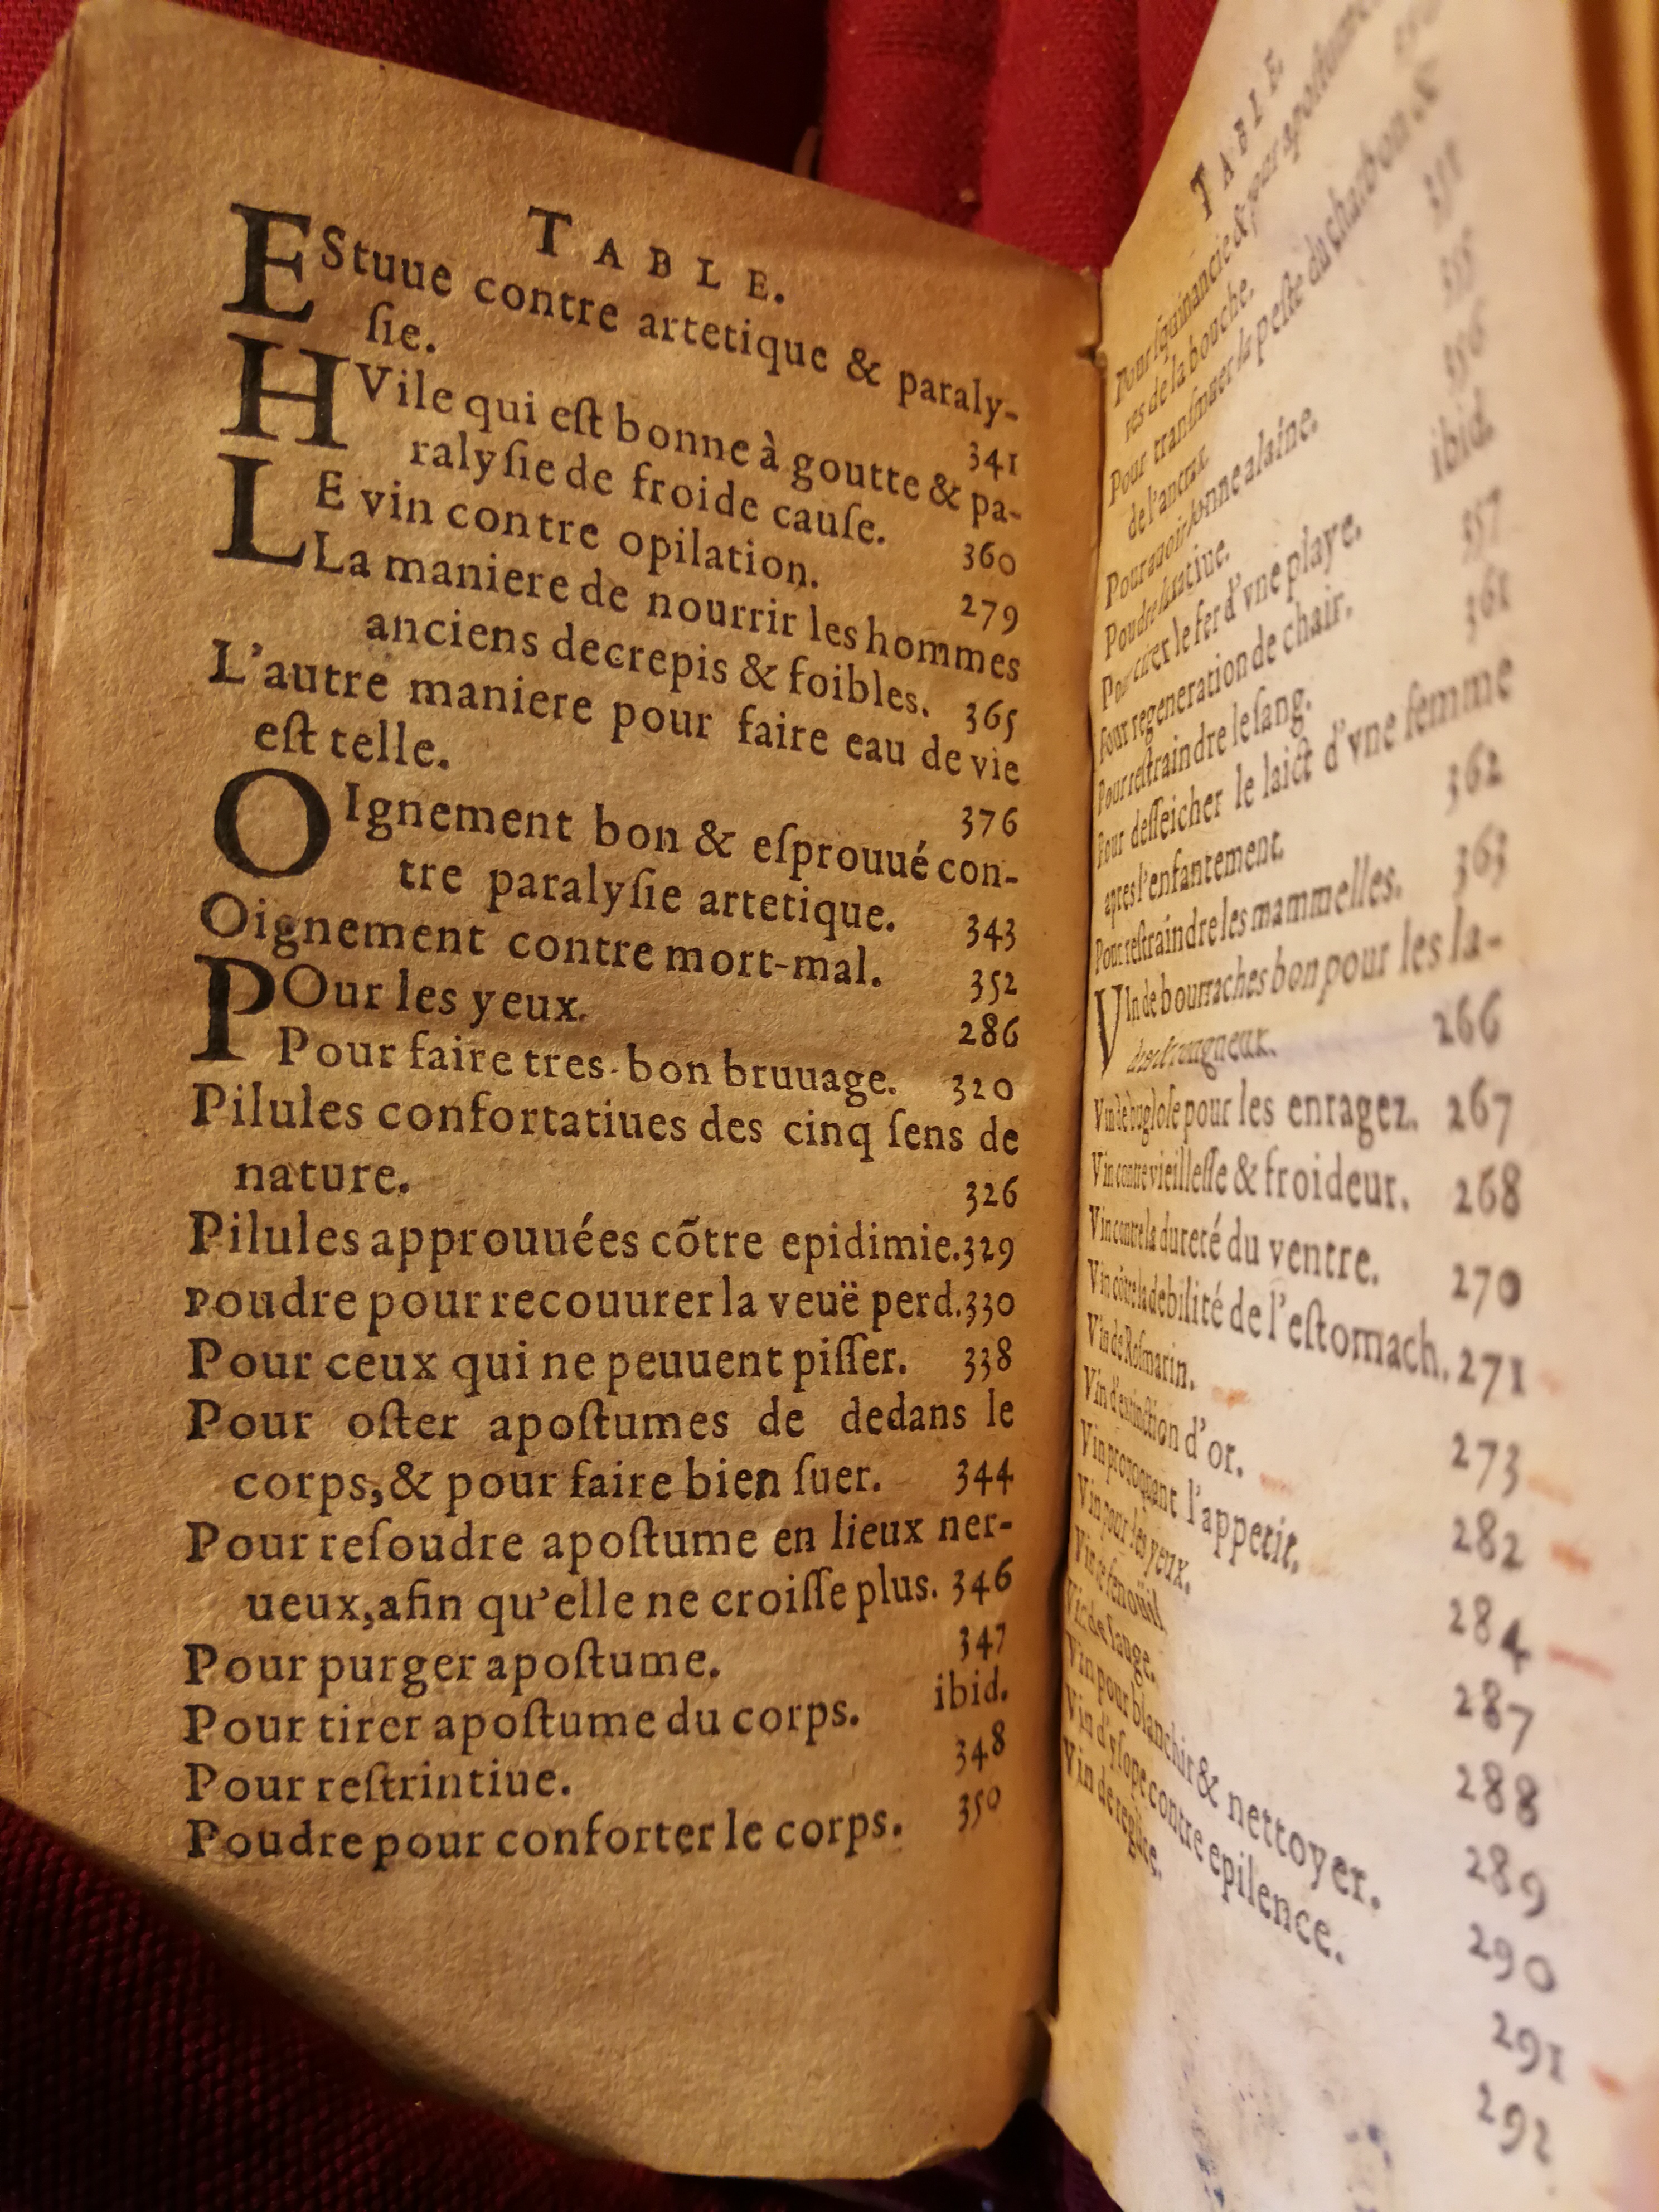 TABLE.
EStuue contre artetique & paraly-
ſie. 341
HVile qui eſt bonne à goutte & pa-
ralyſie de froide cauſe. 360
LE vin contre opilation. 279
La maniere de nourrir les hommes
anciens decrepis & foibles. 365
L'autre maniere pour faire eau de vie
eſt telle. 376
OIgnement bon & eſprouué con-
tre paralyſie artetique. 343
Oignement contre mort-mal. 352
POur les yeux. 286
Pour faire tres-bon bruuage. 320
Pilules confortatiues des cinq ſens de
nature. 326
Pilules approuuées cõtre epidimie. 329
Poudre pour recouurer la veuë perd. 330
Pour ceux qui ne peuuent piſſer. 338
Pour oſter apoſtumes de dedans le
corps, & pour faire bien ſuer. 344
Pour reſoudre apoſtume en lieux ner-
ueux, afin qu'elle ne croiſſe plus. 346
Pour purger apoſtume. 347
Pour tirer apoſtume du corps. ibid.
Pour reſtrintiue. 348
Poudre pour conforter le corps. 350
TABLE
Pour ſquinancie & pour apoſtumes
res de la bouche.
Pour tranſmuer la peſte du charbon &
de l'antrax. 355
Pour auoir bonne alaine. 356
Poudre laxatiue. ibid.
Pour tirer le fer d'vne playe. 357
Pour regeneration de chair. 361
Pour reſtraindre le ſang.
Pour deſſeicher le laict d'vne femme
apres l'enfantement. 362
Pour reſtraindre les mammelles. 363
VIn de bourraches bon pour les la-
dres & rongneux. 266
Vin de bugloſe pour les enragez. 267
Vin contre vieilleſſe & froideur. 268
Vin contre la dureté du ventre. 270
Vin cõtre la debilité de l'eſtomach. 271
Vin de Roſmarin. 273
Vin d'extinction d'or. 282
Vin prouoquant l'appetit. 284
Vin pour les yeux. 287
Vin de fenoüil. 288
Vin de ſauge. 289
Vin pour blanchir & nettoyer. 290
Vin d'yſope contre epilence. 291
Vin de regliſſe. 292